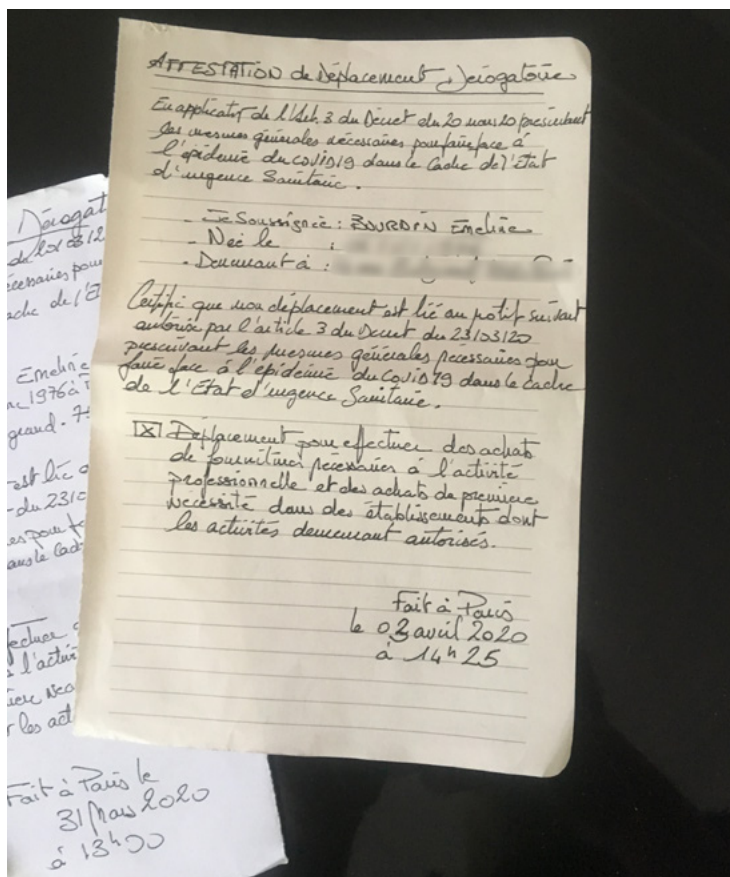 ATTESTATION de Déplacement Dérogatoire
En application de l'Art. 3 du Décret du 20 mars 20 prescrivant
les mesures générales nécessaires pour faire face à
l'épidémie du covid19 dans le Cadre de l'État
d'urgence Sanitaire.
- Je Soussignée : BOURDIN Emeline
- Née le :
- Demeurant à :
Certifie que mon déplacement est lié au motif suivant
autorisé par l'article 3 du Décret du 23/03/20
prescrivant les mesures générales nécessaires pour
faire face à l'épidémie du Covid19 dans le cadre
de l'État d'urgence Sanitaire.
[X] Déplacement pour effectuer des achats
de fournitures nécessaires à l'activité
professionnelle et des achats de première
nécessité dans des établissements dont
les activités demeurant autorisés.
Fait à Paris
le 02 avril 2020
à 14h25
Dérogat
écessaires pour
adre de l'É
Emeline
1976 à
grand. 7
est lié a
du 23/0
es pour f
ans le Cad
fectuer
l'activi
les act
Fait à Paris le
31 Mars 2020
à 13h00